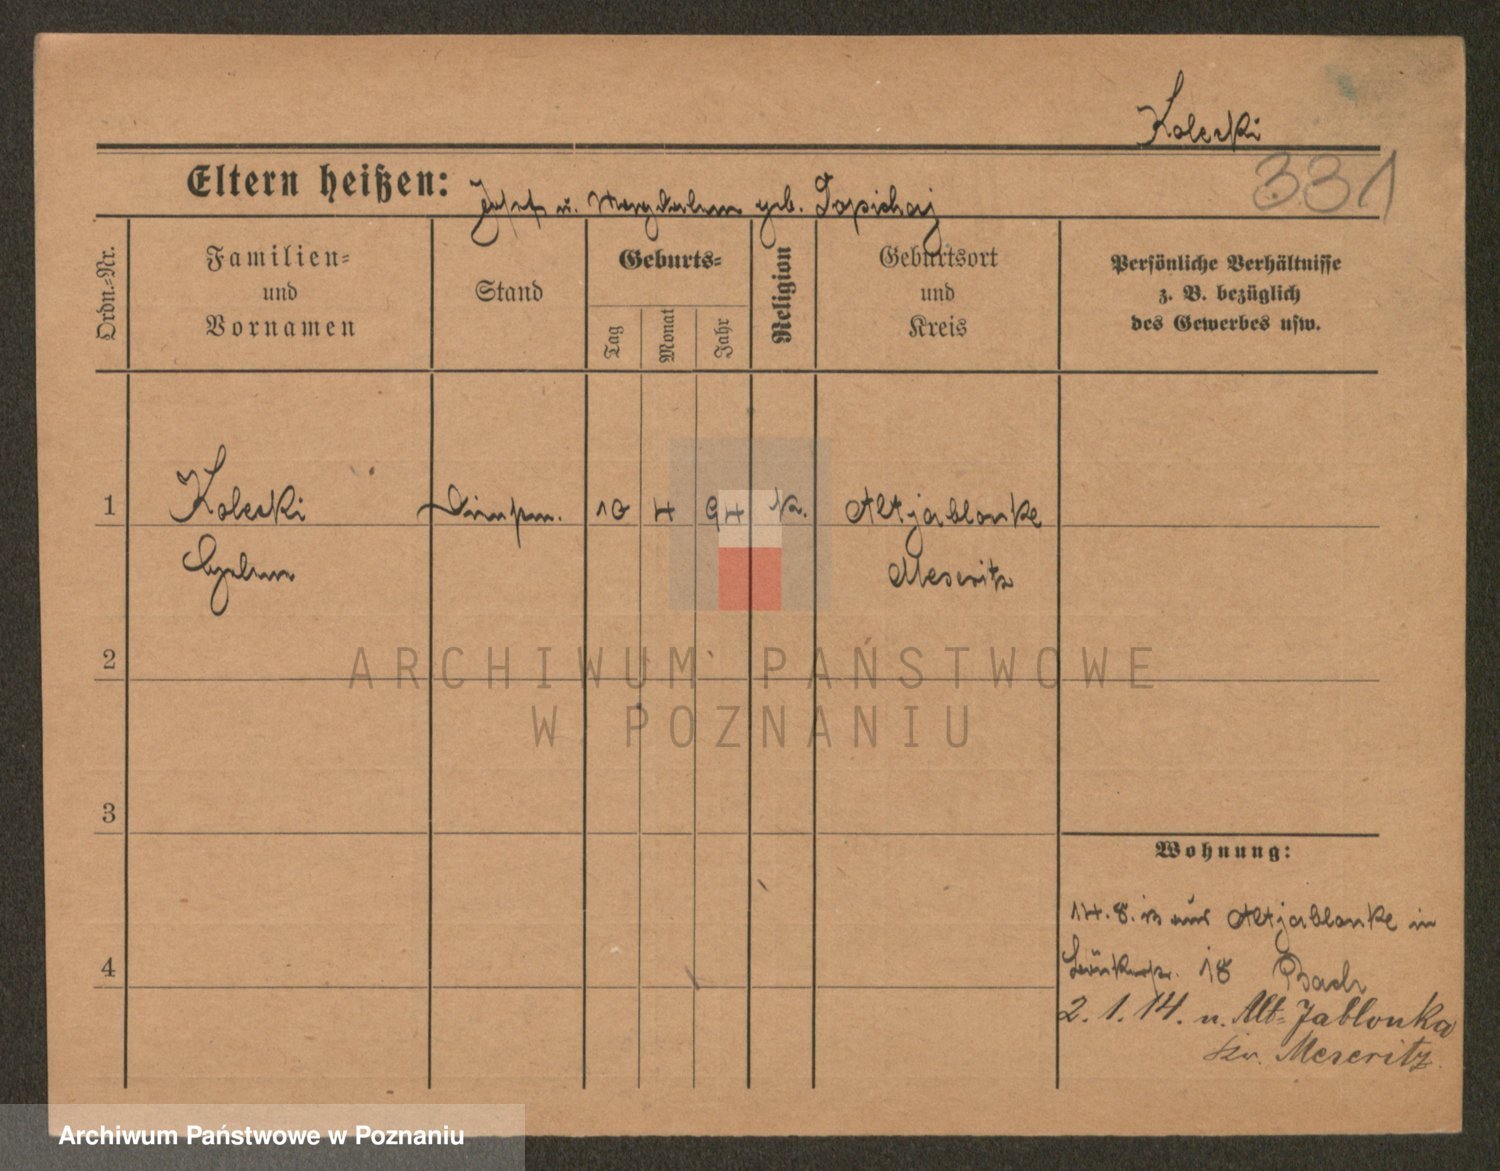 Koleski
331
Eltern heißen: Josef u. Magdalena geb. Topichaj
Ordn.-Nr.
Familien-
und
Vornamen
Stand
Geburts-
Tag
Monat
Jahr
Religion
Geburtsort
und
Kreis
Persönliche Verhältnisse
z. B. bezüglich
des Gewerbes usw.
1 Koleski 10 4 94 k. Altjablonke
Meseritz
2
ARCHIWUM PAŃSTWOWE
W POZNANIU
3
Wohnung:
14.8.13 aus Altjablonke in
4
18 Bach
2.1.14. n. Alt-Jablonka
Kr. Meseritz.
Archiwum Państwowe w Poznaniu